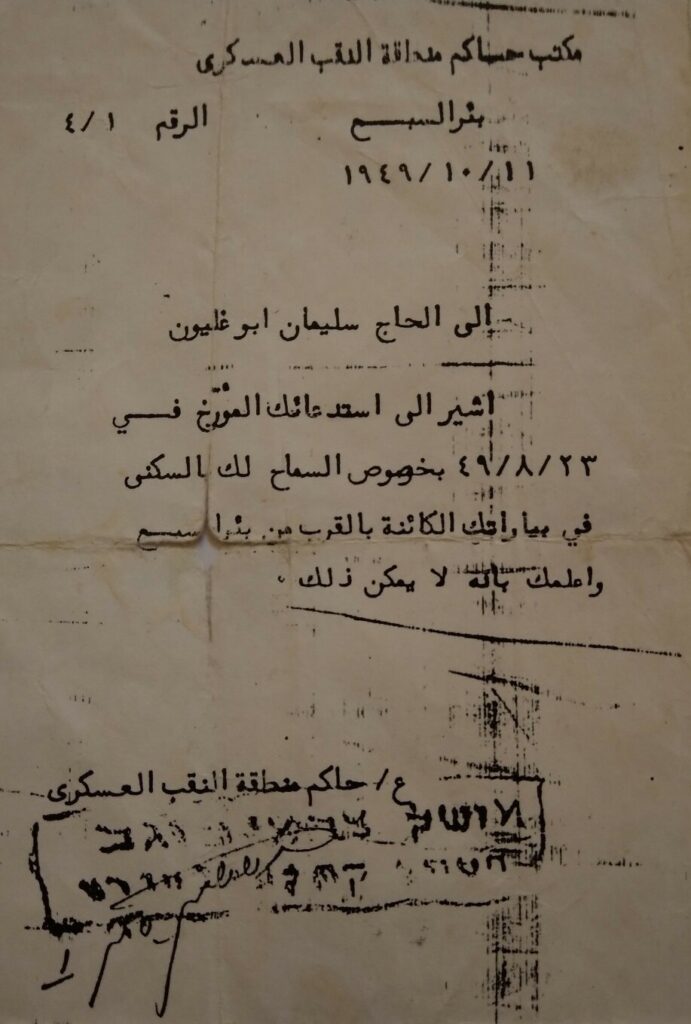 مكتب حاكم منطقة النقب العسكرى
بئر السبع الرقم ٤/١
١٩٤٩/١٠/١١
الى الحاج سليمان ابو غليون
اشير الى استدعائك المؤرّخ في
٤٩/٨/٢٣ بخصوص السماح لك بالسكنى
في بياراتك الكائنة بالقرب من بئر السبع
واعلمك بانه لا يمكن ذلك ٠
ع/ حاكم منطقة النقب العسكرى